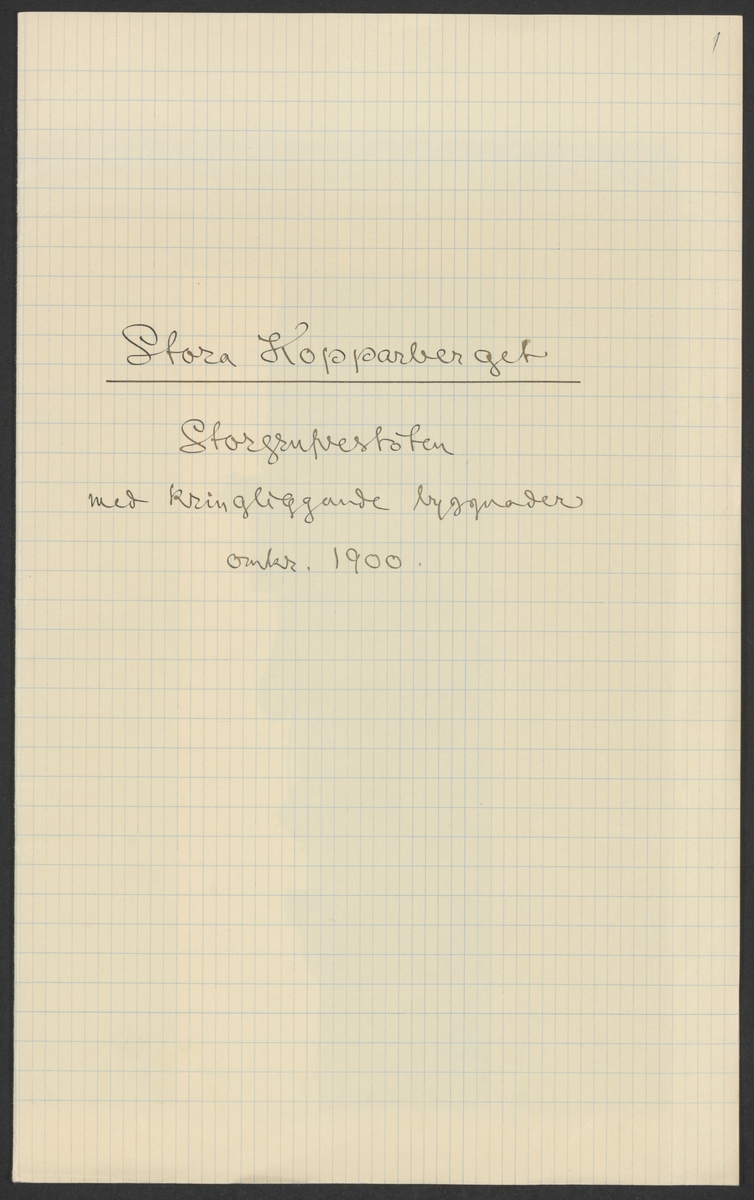 1
Stora Kopparberget
Storgrufvestöten
med kringliggande byggnader
omkr. 1900.